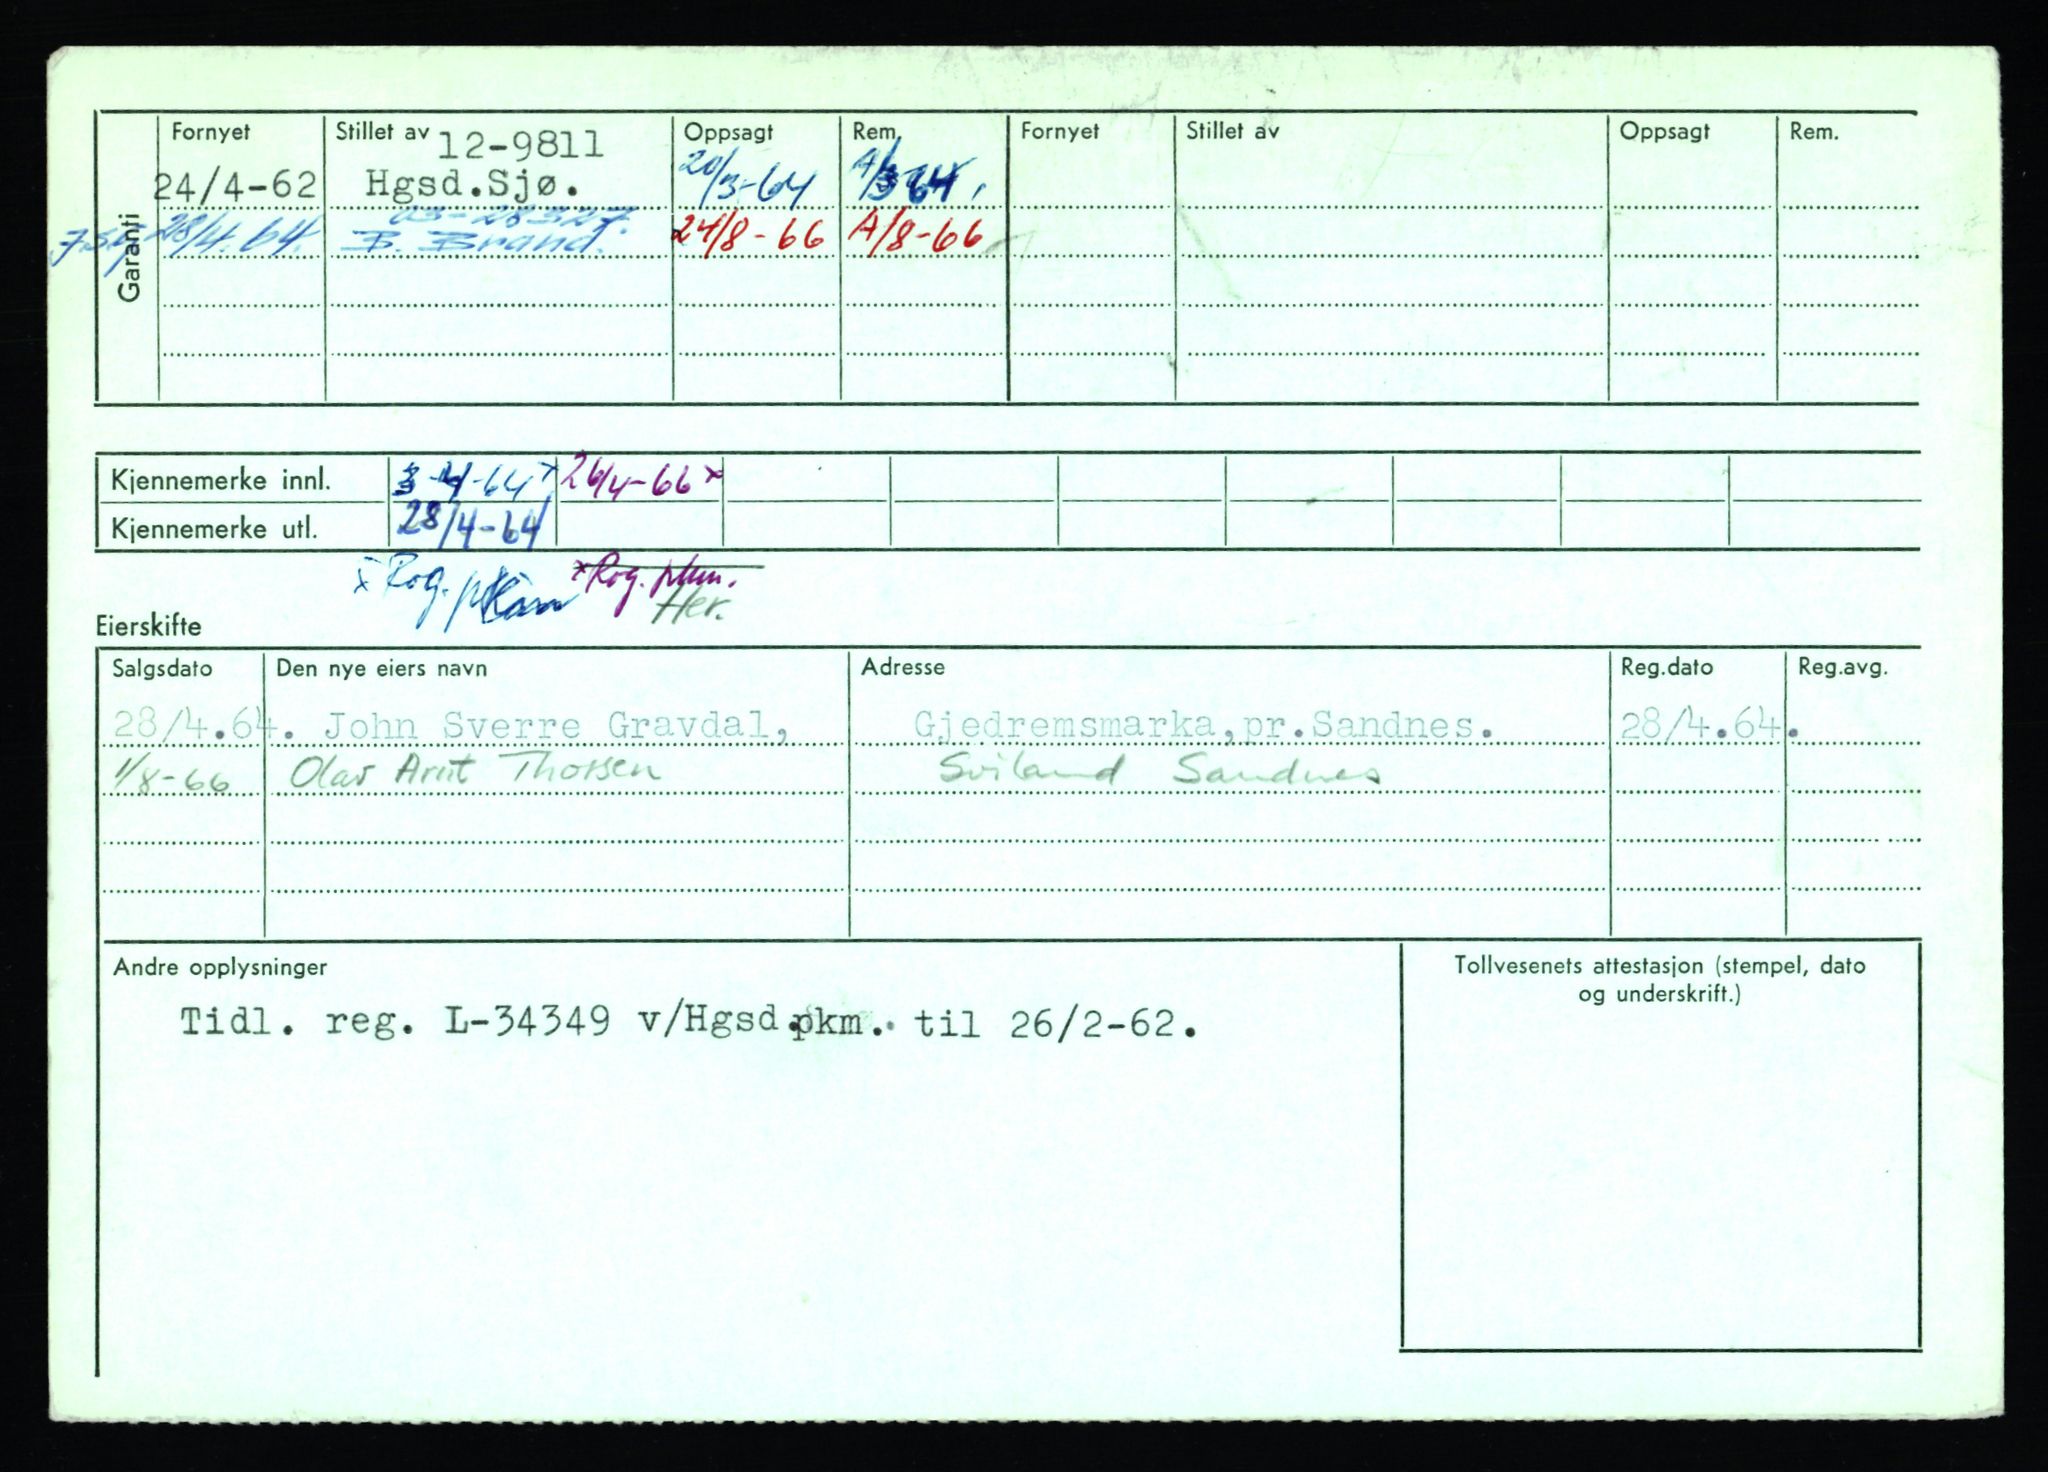 Garanti
Fornyet Stillet av Oppsagt Rem. Fornyet Stillet av Oppsagt Rem.
12-9811
24/4-62 Hgsd.Sjø. 20/3-64 A/3 64.
03-28327.
28/4.64. B. Brand. 24/8-66 A/8-66
Kjennemerke innl. 3-4-64 x 26/4-66 x
Kjennemerke utl. 28/4-64
x Rog. pkm x Rog. pkm.
Her.
Eierskifte
Salgsdato Den nye eiers navn Adresse Reg.dato Reg.avg.
28/4.64. John Sverre Gravdal, Gjedremsmarka,pr.Sandnes. 28/4.64.
1/8-66 Olav Arnt Thorsen Sviland Sandnes
Andre opplysninger
Tollvesenets attestasjon (stempel, dato
og underskrift.)
Tidl. reg. L-34349 v/Hgsd.pkm. til 26/2-62.